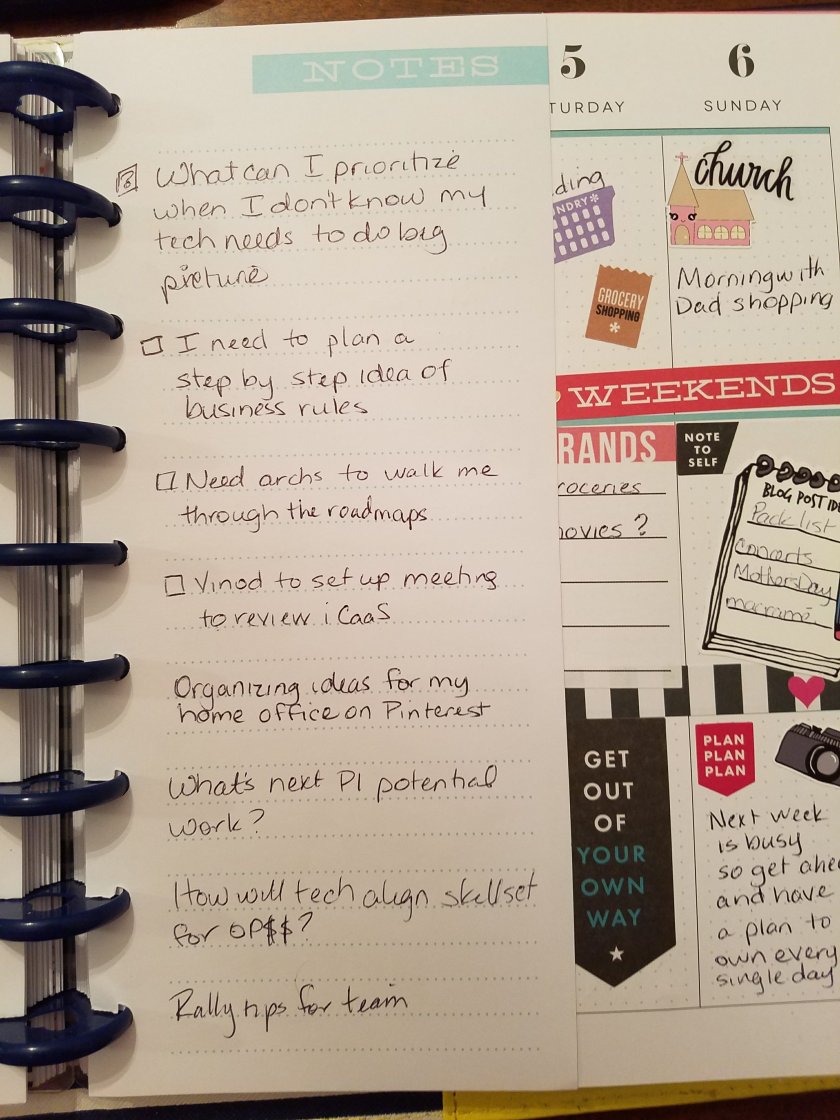 NOTES
What can I prioritize
when I don't know my
tech needs to do big
picture
I need to plan a
step by step idea of
business rules
Need archs to walk me
through the roadmaps
Vinod to set up meeting
to review iCaaS
Organizing ideas for my
home office on Pinterest
What's next PI potential
work?
How will tech align skillset
for OP$$?
Rally tips for team
5
TURDAY
ding
NDRY
GROCERY
SHOPPING
6
SUNDAY
church
Morning with
Dad shopping
WEEKENDS
RANDS
roceries
movies?
NOTE
TO
SELF
BLOG POST IDE
Pack list
Concerts
Mothers Day
macramé
GET
OUT
OF
YOUR
OWN
WAY
PLAN
PLAN
PLAN
Next week
is busy
so get ahe
and have
a plan to
own every
single day